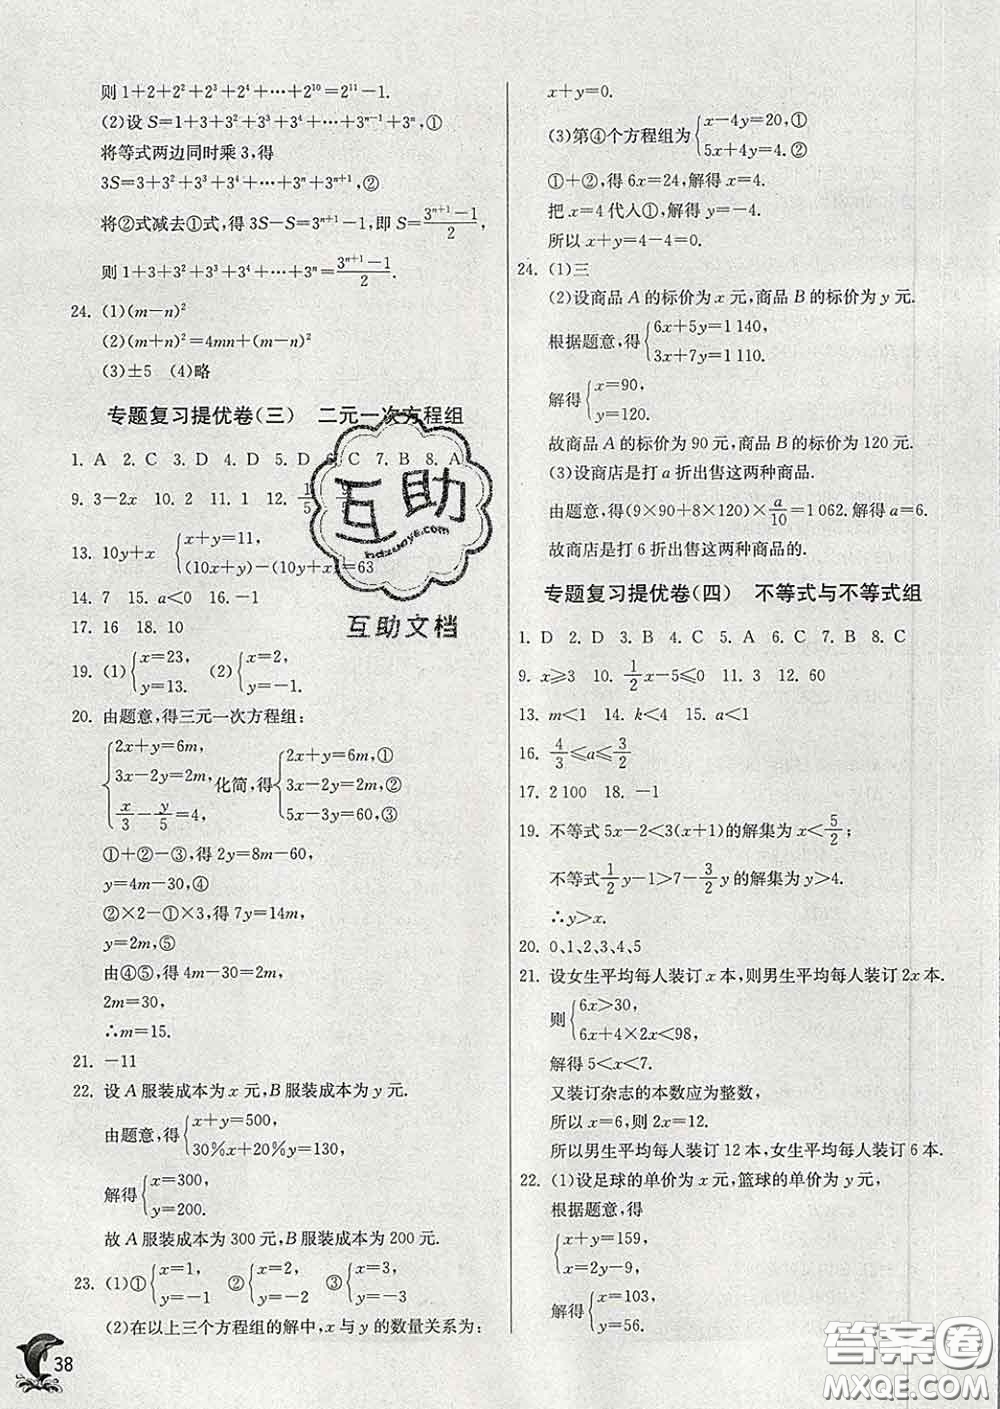 则 1+2+2²+2³+2⁴+⋯+2¹⁰=2¹¹−1.
(2)设 S=1+3+3²+3³+3⁴+⋯+3ⁿ⁻¹+3ⁿ,①
将等式两边同时乘 3,得
3S=3+3²+3³+3⁴+⋯+3ⁿ+3ⁿ⁺¹,②
将②式减去①式,得 3S−S=3ⁿ⁺¹−1,即 S=(3ⁿ⁺¹−1)/2,
则 1+3+3²+3³+3⁴+⋯+3ⁿ=(3ⁿ⁺¹−1)/2.
24. (1)(m−n)²
(2)(m+n)²=4mn+(m−n)²
(3)±5 (4)略
专题复习提优卷(三) 二元一次方程组
1. A 2. C 3. D 4. D 5. D 6. C 7. B 8. A
9. 3−2x 10. 2 11. 1 12. 1/5
13. 10y+x {x+y=11,
(10x+y)−(10y+x)=63
14. 7 15. a<0 16. −1
17. 16 18. 10
19. (1){x=23, (2){x=2,
y=13. y=−1.
20. 由题意,得三元一次方程组:
{2x+y=6m, {2x+y=6m,①
3x−2y=2m,化简,得 3x−2y=2m,②
x/3−y/5=4, 5x−3y=60,③
①+②−③,得 2y=8m−60,
y=4m−30,④
②×2−①×3,得 7y=14m,
y=2m,⑤
由④⑤,得 4m−30=2m,
2m=30,
∴m=15.
21. −11
22. 设 A 服装成本为 x 元,B 服装成本为 y 元.
由题意,得{x+y=500,
30%x+20%y=130,
解得{x=300,
y=200.
故 A 服装成本为 300 元,B 服装成本为 200 元.
23. (1)①{x=1, ②{x=2, ③{x=3,
y=−1 y=−2 y=−3
(2)在以上三个方程组的解中,x 与 y 的数量关系为:
38
x+y=0.
(3)第④个方程组为{x−4y=20,①
5x+4y=4.②
①+②,得 6x=24,解得 x=4.
把 x=4 代入①,解得 y=−4.
所以 x+y=4−4=0.
24. (1)三
(2)设商品 A 的标价为 x 元,商品 B 的标价为 y 元.
根据题意,得{6x+5y=1 140,
3x+7y=1 110.
解得{x=90,
y=120.
故商品 A 的标价为 90 元,商品 B 的标价为 120 元.
(3)设商店是打 a 折出售这两种商品.
由题意,得(9×90+8×120)×a/10=1 062. 解得 a=6.
故商店是打 6 折出售这两种商品的.
专题复习提优卷(四) 不等式与不等式组
1. D 2. D 3. B 4. C 5. A 6. C 7. B 8. C
9. x⩾3 10. 1/2x−5⩽0 11. 3 12. 60
13. m<1 14. k<4 15. a<1
16. 4/3⩽a⩽3/2
17. 2 100 18. −1
19. 不等式 5x−2<3(x+1)的解集为 x<5/2;
不等式1/2y−1>7−3/2y 的解集为 y>4.
∴y>x.
20. 0、1、2、3、4、5
21. 设女生平均每人装订 x 本,则男生平均每人装订 2x 本.
则{6x>30,
6x+4×2x<98,
解得 5<x<7.
又装订杂志的本数应为整数,
所以 x=6,则 2x=12.
所以男生平均每人装订 12 本,女生平均每人装订 6 本.
22. (1)设足球的单价为 x 元,篮球的单价为 y 元,
根据题意,得
{x+y=159,
x=2y−9,
解得{x=103,
y=56.
互助
hdzuoye.com
互助文档
答案圈
MXQE.COM